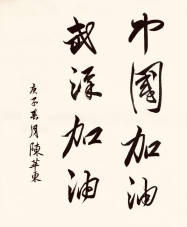 中國加油
武漢加油
庚子春月陳華東